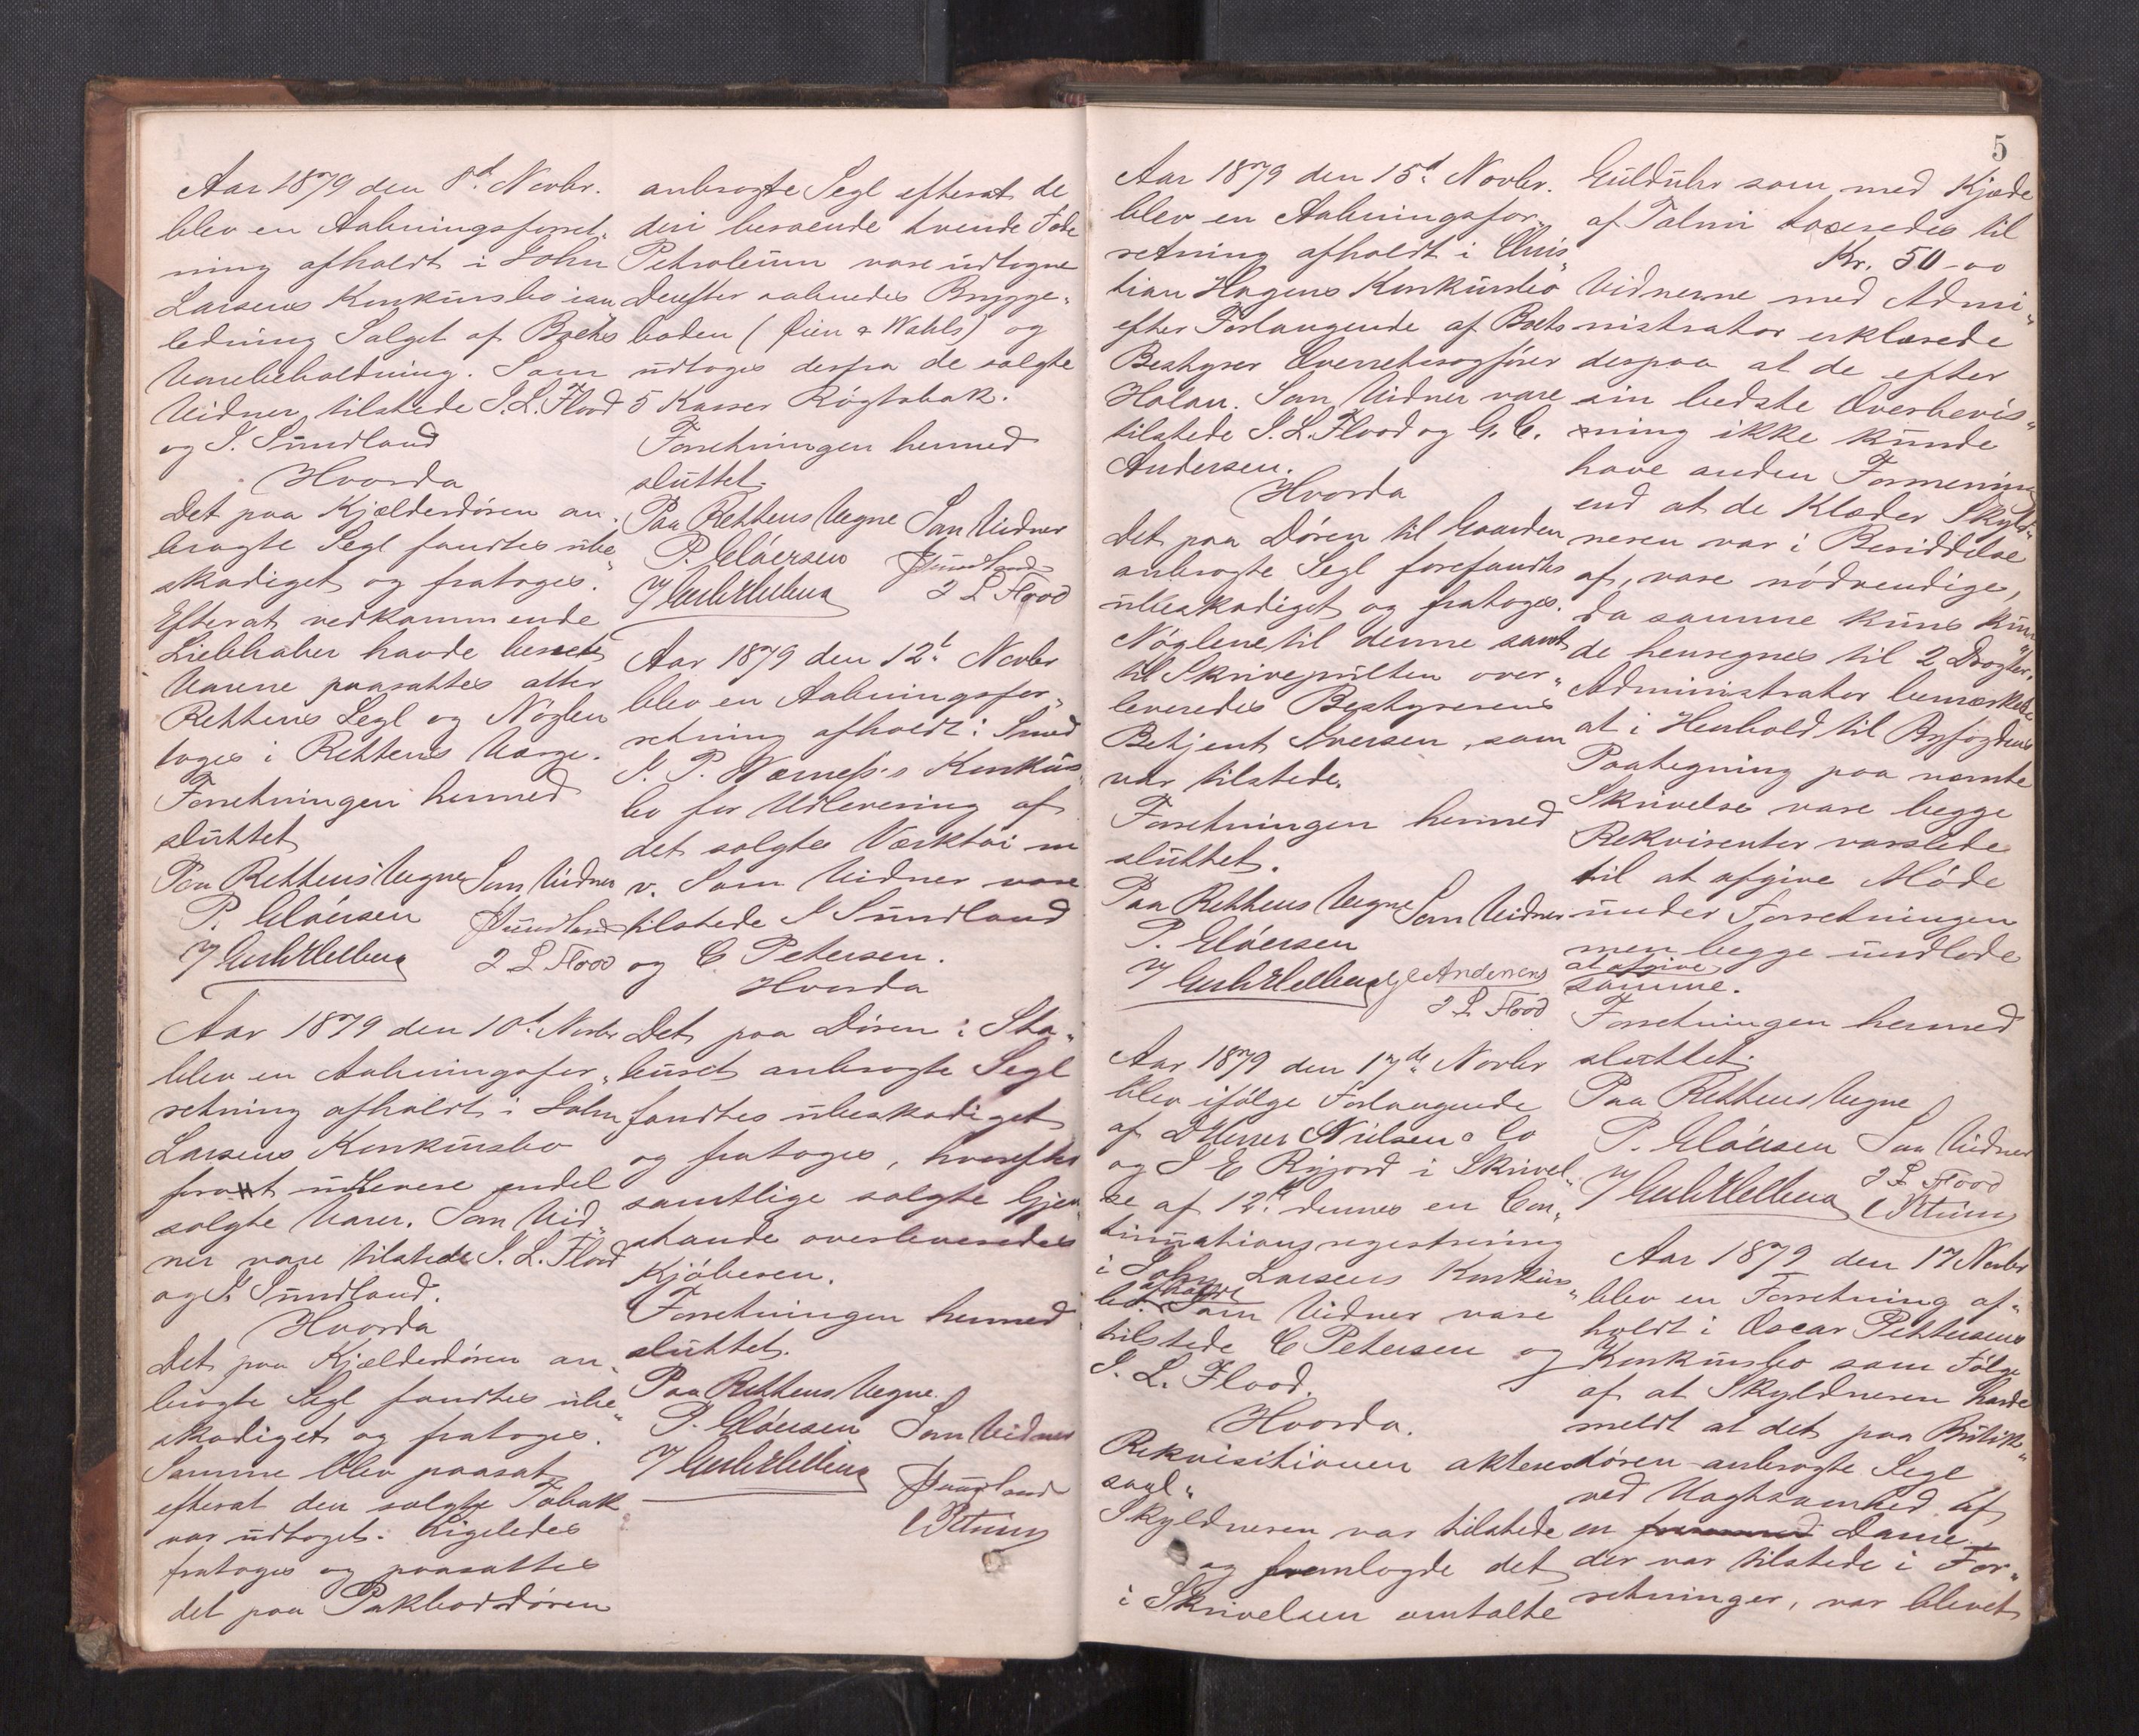 Aar 1879 den 8d. Novbr.
blev en Aabningsforret„
ning afholdt i John
Larsens Konkursbo ian
ledning Salget af Boets
Varebeholdning. Som
Vidner tilstede J. L. Flood
og J. Sundland
Hvorda
Det paa Kjælderdören an„
bragte Segl fandtes ube„
skadiget og fratoges.
Efterat vedkommende
Liebhaber havde beseet
Varene paasattes atter
Rettens Segl og Nöglen
toges i Rettens Værge.
Forretningen hermed
sluttet
Paa Rettens Vegne Som Vidner
P. Clöersen JSundland
J L Flood
Aar 1879 den 10d. Novbr
blev en Aabningsfor„
retning afholdt i John
Larsens Konkursbo
forat udlevere endel
solgte Varer. Som Vid„
ner vare tilstede J. L. Flood
og J. Sundland.
Hvorda
Det paa Kjælderdören an„
bragte Segl fandtes ube„
skadiget og fratoges.
Samme blev paasat
efterat den solgte Tobak
var udtaget. Ligeledes
fratoges og paasattes
det paa Pakboddören
anbragte Segl efterat de
deri beroende tvende Fade
Petroleum vare udtagne
Derefter aabnedes Brygge„
boden (Öien & Wahls) og
udtoges derfra de solgte
5 Kasser Rögtobak.
Forretningen hermed
sluttet.
Paa Rettens Vegne Som Vidner
P. Clöersen JSundland
J L Flood
Aar 1879 den 12t. Novbr
blev en Aabningsfor„
retning afholdt i Smed
J. P. Værness's Konkurs„
bo for Udlevering af
det solgte Værktöi m
v. Som Vidner vare
tilstede J Sundland
og C Petersen.
Hvorda
Det paa Dören i Sta„
buret anbragte Segl
fandtes ubeskadiget
og fratoges, hvorefter
samtlige solgte Gjen„
stande overleveredes
Kjöberen.
Forretningen hermed
sluttet.
Paa Rettens Vegne
P. Clöersen Som Vidner
JSundland
CPetersen
5
Aar 1879 den 15d. Novbr.
blev en Aabningsfor„
retning afholdt i Chris„
tian Hagens Konkursbo
efter Forlangende af Boets
Bestyrer Overretssagförer
Halan. Som Vidner vare
tilstede J. L. Flood og G. C.
Andersen.
Hvorda
Det paa Dören til Gaarden
anbragte Segl forefandtes
ubeskadiget og fratoges.
Nöglene til denne samt
til Skrivepulten over„
leveredes Bestyrerens
Betjent Iversen, som
var tilstede.
Forretningen hermed
sluttet.
Paa Rettens Vegne Som Vidner
P. Clöersen
G C Andersen
J L Flood
Aar 1879 den 17de Novbr
blev ifölge Forlangende
af DHerrer Nielsen & Co
og J E Rijord i Skrivel„
se af 12d. dennes en Con„
tinuationsregistrering
i John Larsens Konkurs„
bo. afholdt Som Vidner vare
tilstede C Petersen og
J. L. Flood.
Hvorda.
Rekvisitionen akteres
saal„
Skyldneren var tilstede
og fremlagde det
i Skrivelsen omtalte
Gulduhr som med Kjæde
af Talmi taxeredes til
Kr. 50-00
Vidnerne med Admi„
nistrator erklærede
derpaa at de efter
sin bedste Overbevis„
ning ikke kunde
have anden Formening
end at de Klæder Skyld„
neren var i Besiddelse
af, vare nödvendige,
da samme kuns kun„
de henregnes til 2 Dragter.
Administrator bemærkede
at i Henhold til Byfogdens
Paategning paa nævnte
Skrivelse vare begge
Rekvirenter varslede
til at afgive Möde
under Forretningen
men begge undlode
at afgive
samme.
Forretningen hermed
sluttet.
Paa Rettens Vegne
P. Clöersen Som Vidner
J L Flood
CPetersen
Aar 1879 den 17 Novbr
blev en Forretning af„
holdt i Oscar Pettersens
Konkursbo som Fölge
af at Skyldneren havde
meldt at det paa Butik„
dören anbragte Segl
ved Uagtsomhed af
en Dame
der var tilstede i For„
retninger, var blevet